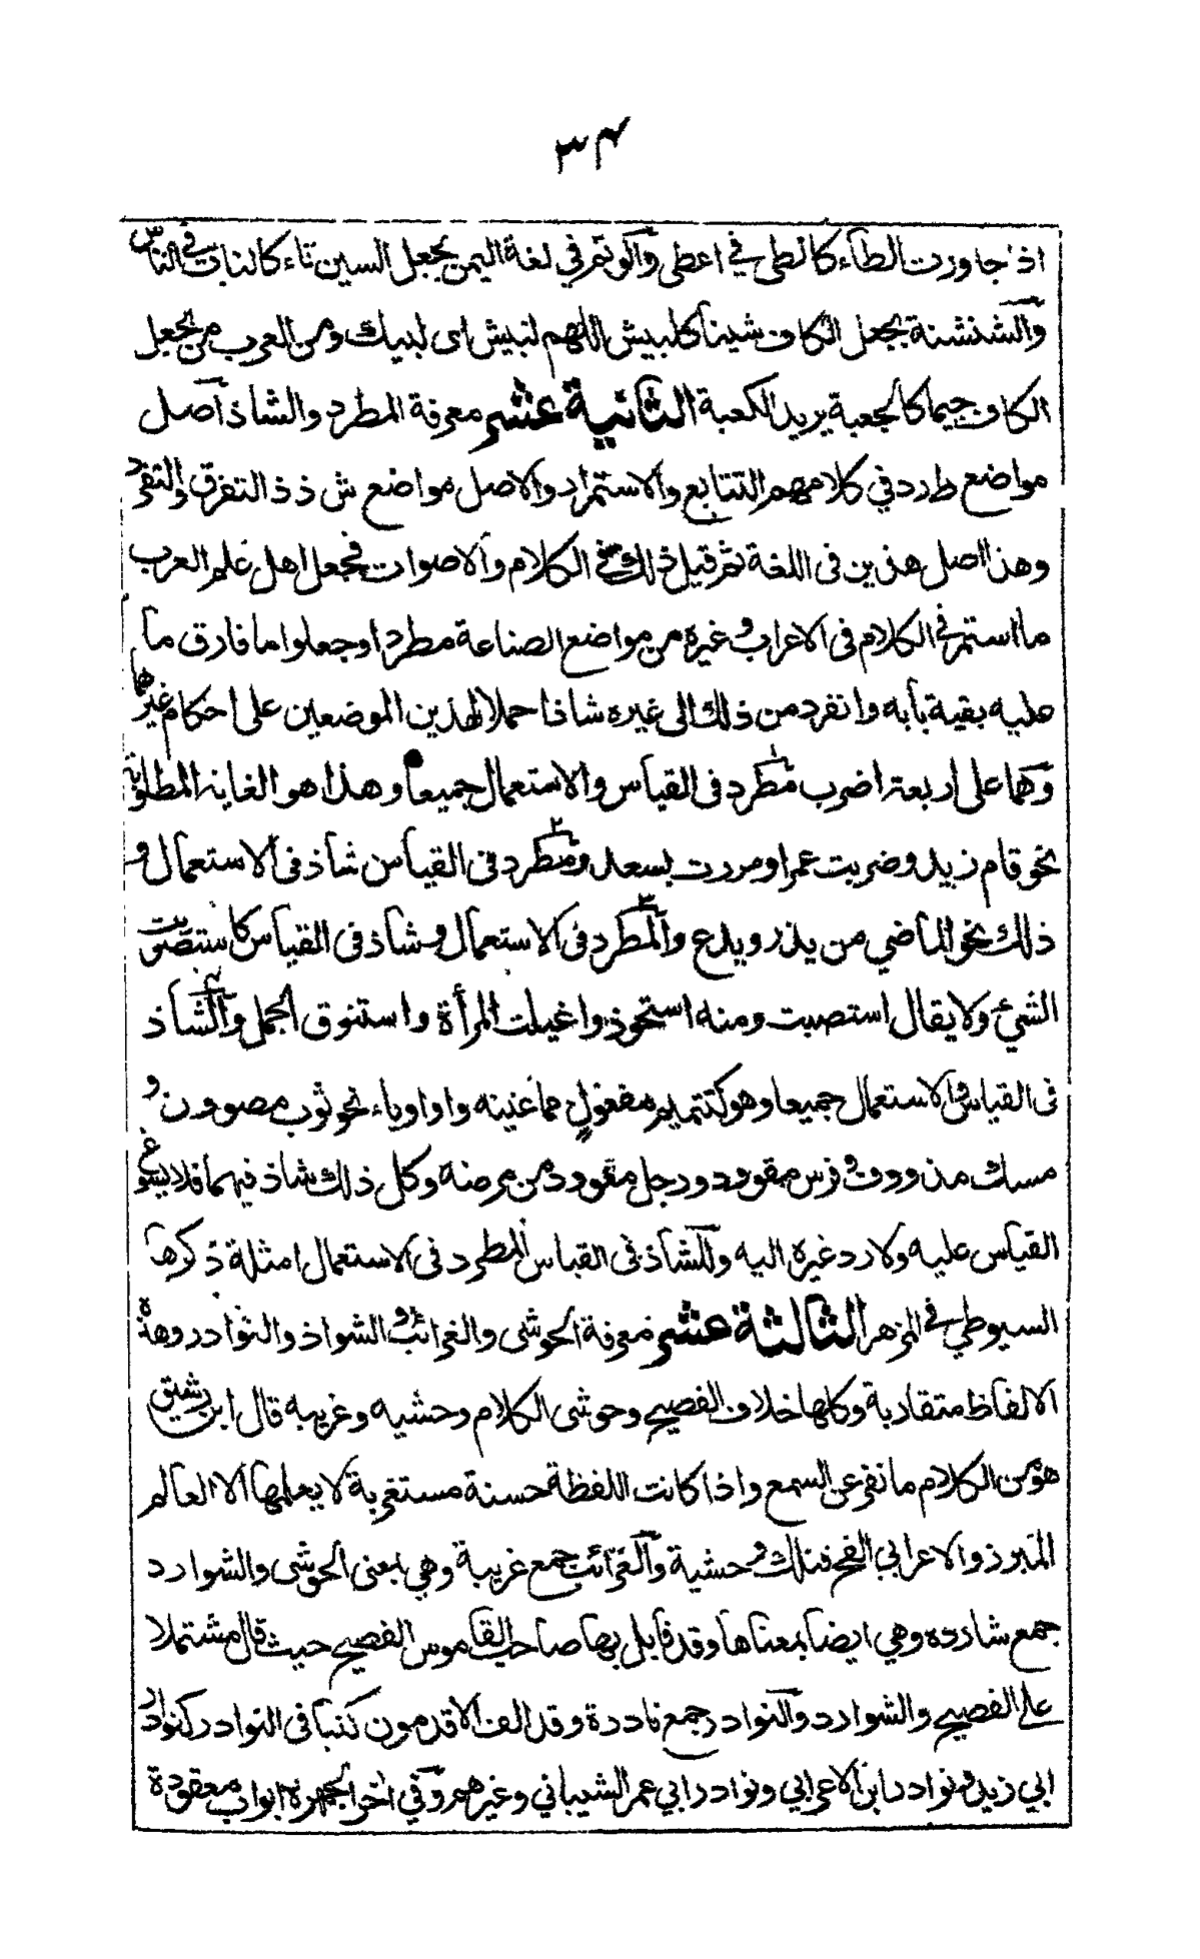 ٣٤
اذا جاورت الطاء كانطى في اعطى والوتم في لغة اليمن بجعل السين تاء كالنات في الناس
والشنشنة بجعل الكاف شينا كلبيش اللهم لبيش اى لبيك ومن العرب من يجعل
الكاف جيما كالجعبة يريد الكعبة الثانية عشر معرفة المطرد والشاذ اصل
مواضع طرد في كلامهم التتابع والاستمرار والاصل مواضع ش ذ ذ التفرق والتفرد
وهذا اصل هذين فى اللغة ثم قيل ذلك في الكلام والاصوات فجعل اهل علم العرب
ما استمر في الكلام فى الاعراب وغيره من مواضع الصناعة مطردا وجعلوا ما فارق ما
عليه بقية بابه وانفرد من ذلك الى غيره شاذا حملا لهذين الموضعين على احكام غيرها
وهما على اربعة اضرب مطرد فى القياس والاستعمال جميعا وهذا هو الغاية المطلوبة
نحو قام زيد وضربت عمرا ومررت بسعد ومطرد فى القياس شاذ فى الاستعمال و
ذلك نحو الماضي من يذر ويدع والمطرد فى الاستعمال وشاذ فى القياس كاستصوبت
الشيء ولا يقال استصبت ومنه استحوذ واغيلت المرأة واستنوق الجمل والشاذ
فى القياس والاستعمال جميعا وهو كتتميم مفعول مما عينه واو او ياء نحو ثوب مصوون و
مسك مذووف وفرس مقوود ورجل معوود من مرضه وكل ذلك شاذ فيهما فلا يسوغ
القياس عليه ولا رد غيره اليه وللشاذ فى القياس المطرد فى الاستعمال امثلة ذكرها
السيوطي في المزهر الثالثة عشر معرفة الحوشى والغرائب والشواذ والنوادر وهذه
الالفاظ متقاربة وكلها خلاف الفصيح وحوشى الكلام وحشيه وغريبه قال ابن رشيق
هو من الكلام ما نفر عن السمع واذا كانت اللفظة حسنة مستغربة لا يعلمها الا العالم
المبرز والاعرابي القح فتلك وحشية والغرائب جمع غريبة وهي بمعنى الحوشى والشوارد
جمع شاردة وهي ايضا بمعناها وقد قابل بها صاحب القاموس الفصيح حيث قال مشتملا
على الفصيح والشوارد والنوادر جمع نادرة وقد الف الاقدمون كتبا فى النوادر كنوادر
ابي زيد ونوادر ابن الاعرابي ونوادر ابي عمر الشيباني وغيرهم وفي اخر الجمهرة ابواب معقودة